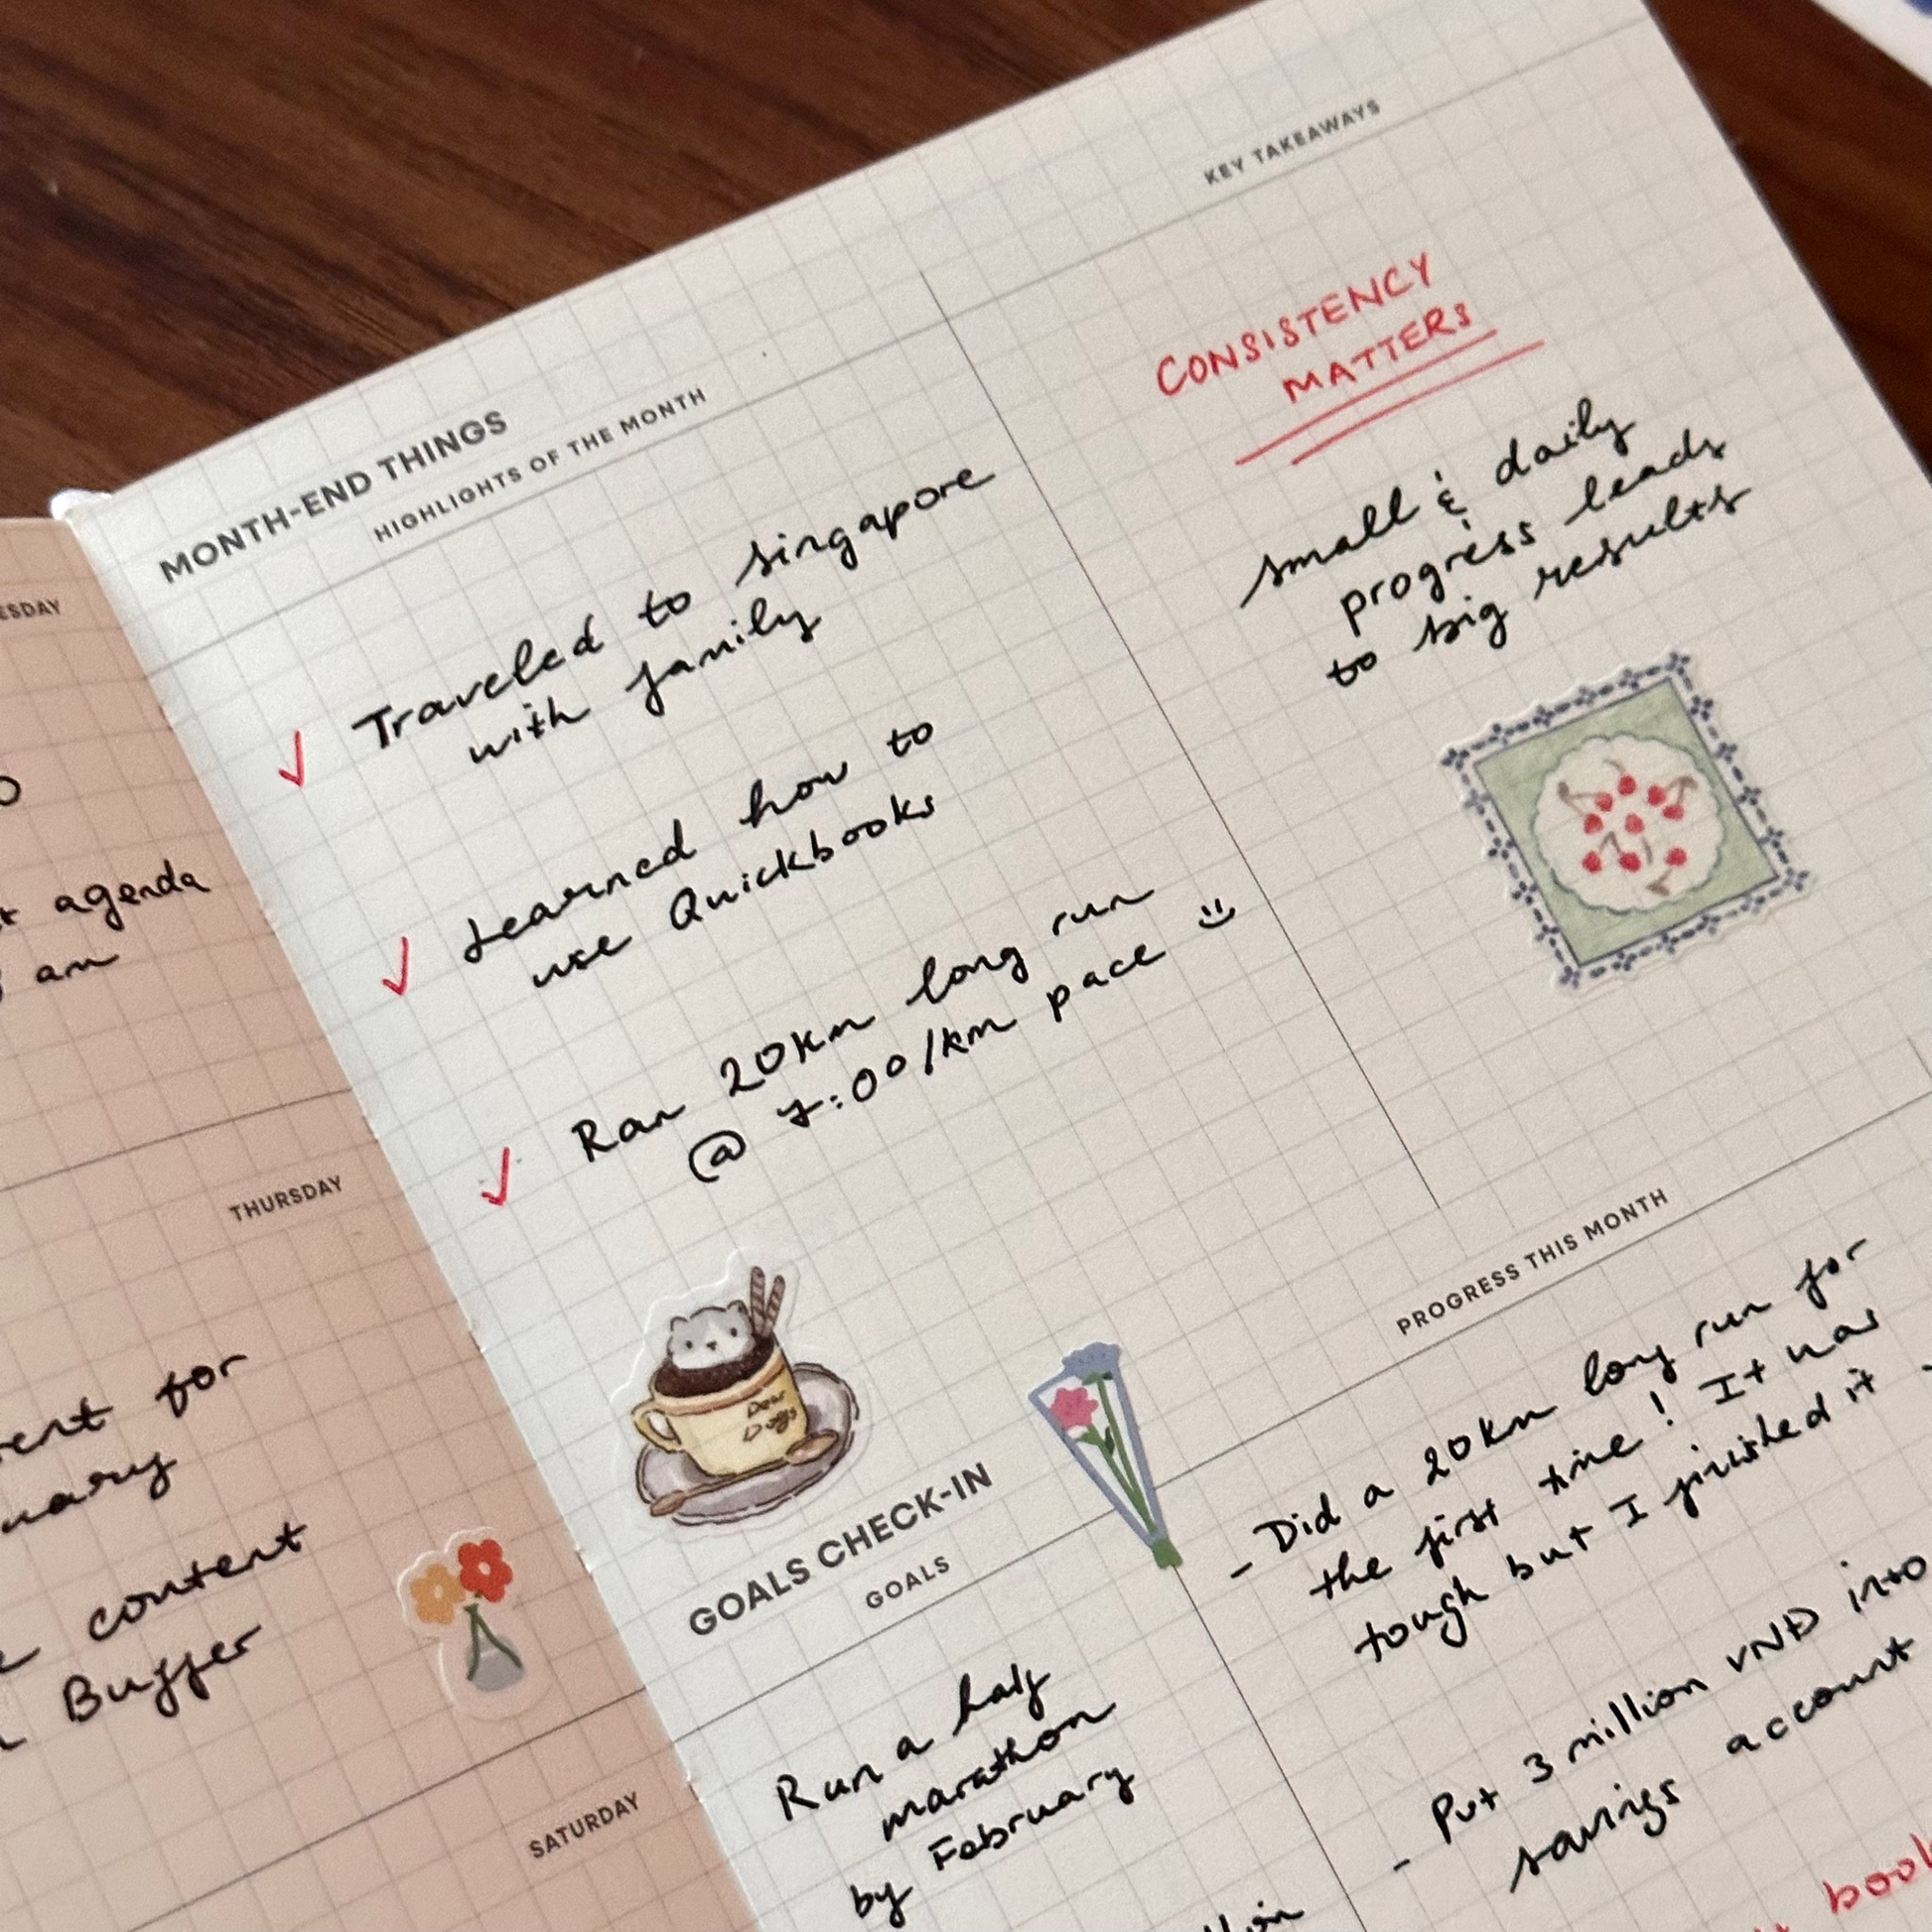 ESDAY
agenda
am
THURSDAY
for
content
Buffer
SATURDAY
MONTH-END THINGS
HIGHLIGHTS OF THE MONTH
Traveled to singapore
with family
Learned how to
use Quickbooks
Ran 20km long run
@ 7:00/km pace
Dear
Dogs
KEY TAKEAWAYS
CONSISTENCY
MATTERS
small & daily
progress leads
to big results
GOALS CHECK-IN
GOALS
Run a half
marathon
by February
PROGRESS THIS MONTH
- Did a 20km long run for
the first time! It was
tough but I finished it
- Put 3 million VND into
savings account